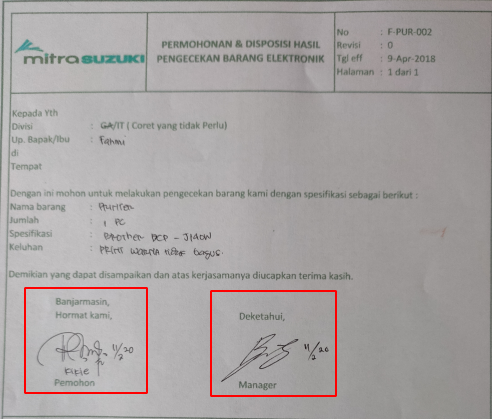 mitrasuzuki
PERMOHONAN & DISPOSISI HASIL
PENGECEKAN BARANG ELEKTRONIK
No : F-PUR-002
Revisi : 0
Tgl eff : 9-Apr-2018
Halaman : 1 dari 1
Kepada Yth
Divisi : GA/IT ( Coret yang tidak Perlu)
Up. Bapak/Ibu : Fahmi
di
Tempat
Dengan ini mohon untuk melakukan pengecekan barang kami dengan spesifikasi sebagai berikut :
Nama barang : Printer
Jumlah : 1 PC
Spesifikasi : Brother DCP -
Keluhan : PRINT WARNA bagus.
Demikian yang dapat disampaikan dan atas kerjasamanya diucapkan terima kasih.
Banjarmasin,
Hormat kami,
11/2 20
Kikie
Pemohon
Deketahui,
11/2 20
Manager